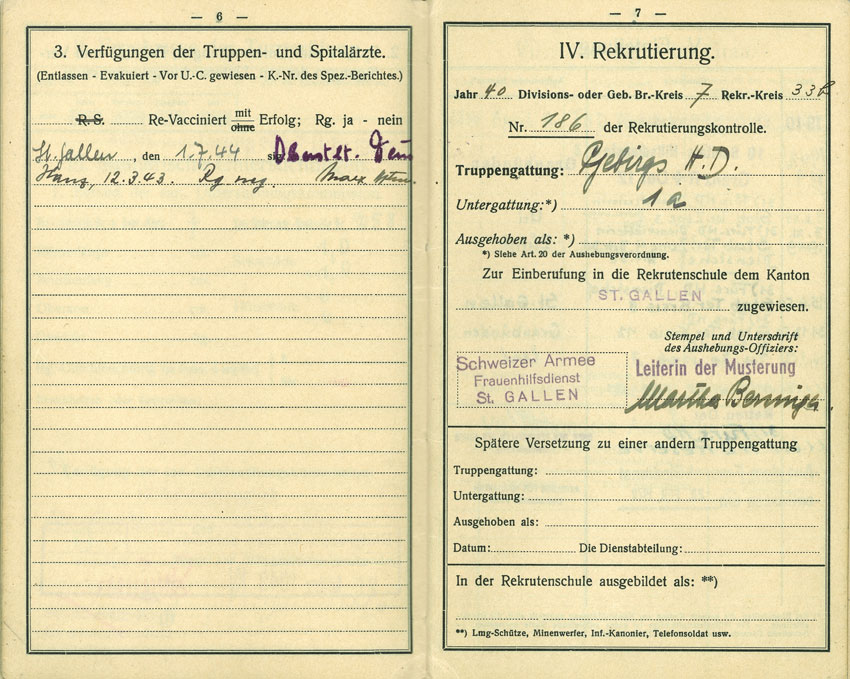 — 6 —
3. Verfügungen der Truppen- und Spitalärzte.
(Entlassen - Evakuiert - Vor U.-C. gewiesen - K.-Nr. des Spez.-Berichtes.)
R.S. Re-Vacciniert mit/ohne Erfolg; Rg. ja - nein
St. Gallen, den 1.7.44 sig. Oberstlt.
12.3.43. Rg neg.
— 7 —
IV. Rekrutierung.
Jahr 40 Divisions- oder Geb. Br.-Kreis 7 Rekr.-Kreis 33b
Nr. 186 der Rekrutierungskontrolle.
Truppengattung: Gebirgs H.D.
Untergattung:*) 1a
Ausgehoben als: *)
*) Siehe Art. 20 der Aushebungsverordnung.
Zur Einberufung in die Rekrutenschule dem Kanton
ST. GALLEN zugewiesen.
Stempel und Unterschrift
des Aushebungs-Offiziers:
Schweizer Armee
Frauenhilfsdienst
St. GALLEN
Leiterin der Musterung
Martha
Spätere Versetzung zu einer andern Truppengattung
Truppengattung:
Untergattung:
Ausgehoben als:
Datum: Die Dienstabteilung:
In der Rekrutenschule ausgebildet als: **)
**) Lmg-Schütze, Minenwerfer, Inf.-Kanonier, Telefonsoldat usw.